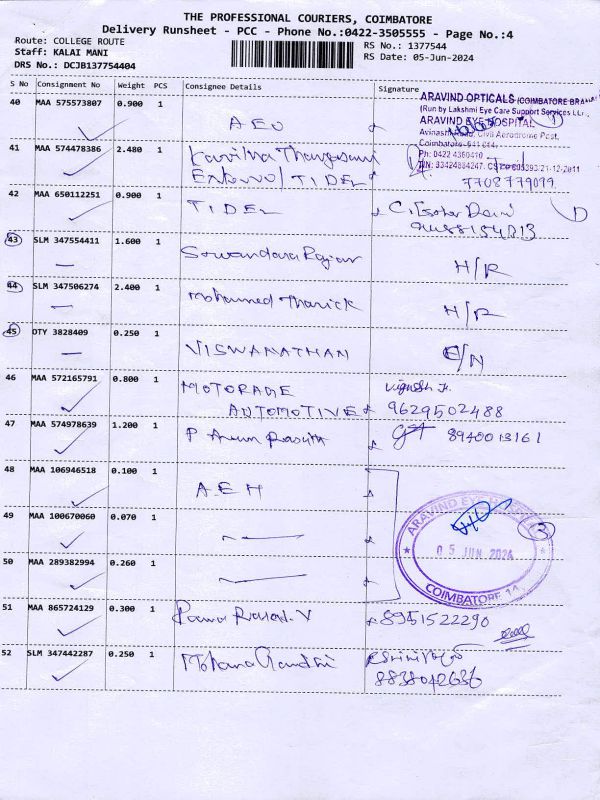 THE PROFESSIONAL COURIERS, COIMBATORE
Delivery Runsheet - PCC - Phone No.:0422-3505555 - Page No.:4
Route: COLLEGE ROUTE
Staff: KALAI MANI
DRS No.: DCJB137754404
RS No.: 1377544
RS Date: 05-Jun-2024
S No Consignment No Weight PCS Consignee Details Signature
ARAVIND OPTICALS (COIMBATORE BRANCH)
(Run by Lakshmi Eye Care Support Services
ARAVIND EYE HOSPITAL
Avinashi Road, Civil Aerodrome Post,
Coimbatore
40 MAA 575573807 0.900 1
41 MAA 574478386 2.480 1 Kavitha Thangasami
TIDEL
7708779099
42 MAA 650112251 0.900 1 TIDEL
43 SLM 347554411 1.600 1 H/R
44 SLM 347506274 2.400 1 Mohammed Tharick H/R
45 DTY 3828409 0.250 1 VISWANATHAN
46 MAA 572165791 0.800 1 MOTORAGE
AUTOMOTIVE 9629502488
47 MAA 574978639 1.200 1 P Arun 8940013161
48 MAA 106946518 0.100 1 A.E.H
49 MAA 100670060 0.070 1
50 MAA 289382994 0.260 1
ARAVIND EYE HOSPITAL
05 JUN 2024
COIMBATORE 14
3
51 MAA 865724129 0.300 1 8951522290
52 SLM 347442287 0.250 1 Mohana Gandhi
8838042636